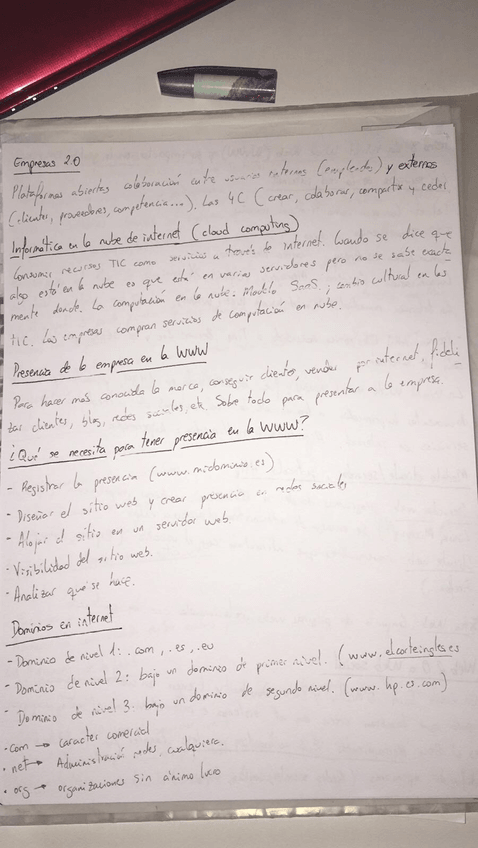 Empresas 2.0
Plataformas abiertas colaboración entre usuarios internos (empleados) y externos
(clientes, proveedores, competencia...). Las 4C (crear, colaborar, compartir y ceder
Informática en la nube de internet (cloud computing)
Consumir recursos TIC como servicios a través de internet. Cuando se dice que
algo está en la nube es que está en varios servidores pero no se sabe exacta
mente donde. La computación en la nube: Modelo SaaS; cambio cultural en las
TIC. Las empresas compran servicios de computación en nube.
Presencia de la empresa en la WWW
Para hacer más conocida la marca, conseguir clientes, vender por internet, fideli
zar clientes, blog, redes sociales, etc. Sobre todo para presentar a la empresa.
¿Qué se necesita para tener presencia en la WWW?
- Registrar la presencia (www.midominio.es)
- Diseñar el sitio web y crear presencia en redes sociales
- Alojar el sitio en un servidor web.
- Visibilidad del sitio web.
- Analizar qué se hace.
Dominios en internet
- Dominio de nivel 1: .com, .es, .eu
- Dominio de nivel 2: bajo un dominio de primer nivel. (www.elcorteingles.es
- Dominio de nivel 3: bajo un dominio de segundo nivel. (www.hp.es.com)
.com → caracter comercial
.net → Administración redes, cualquiera.
.org → organizaciones sin ánimo lucro